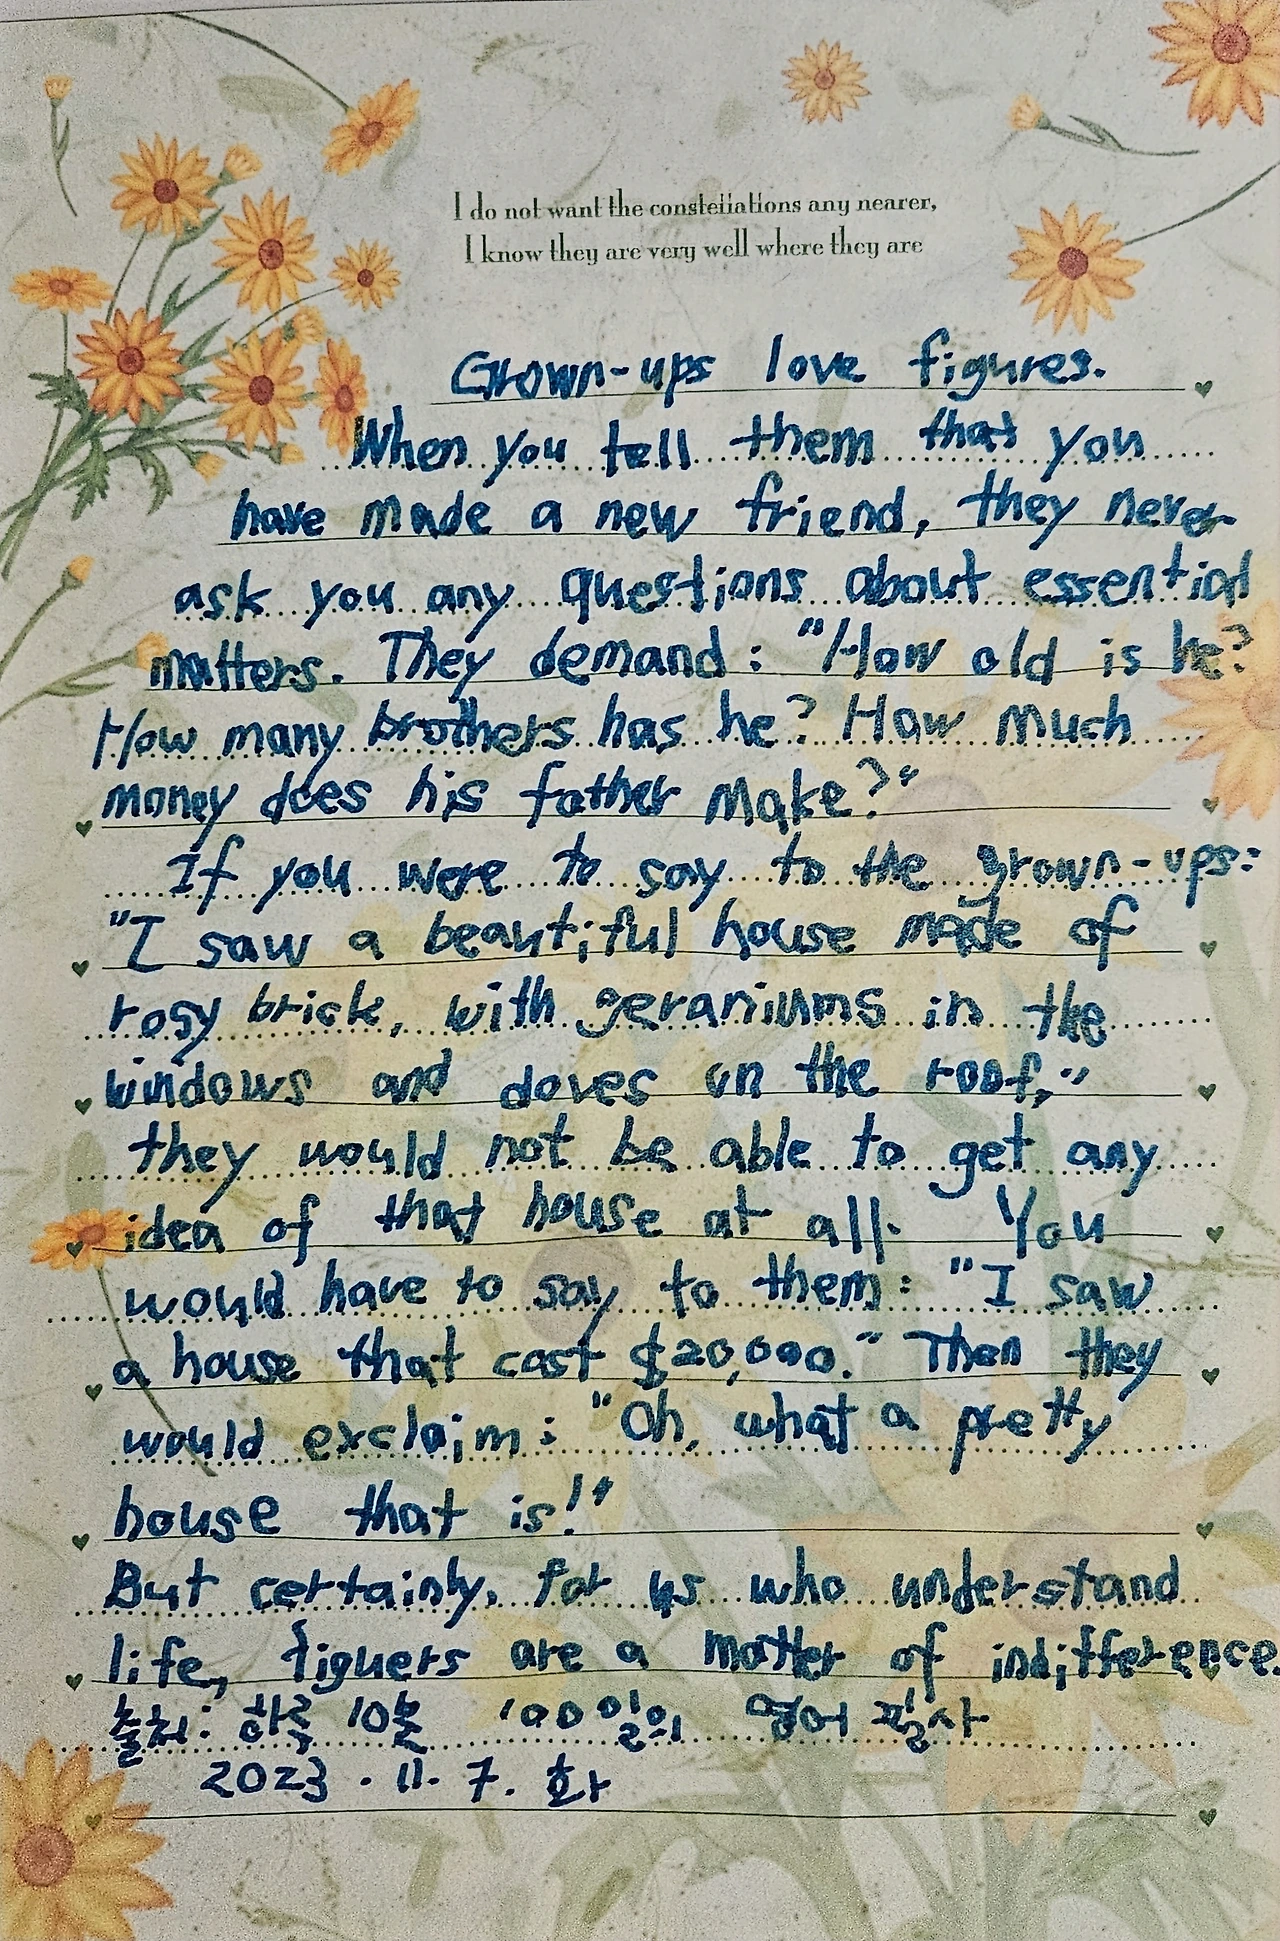 I do not want the constellations any nearer,
I know they are very well where they are
Grown-ups love figures.
When you tell them that you
have made a new friend, they never
ask you any questions about essential
matters. They demand : "How old is he?
How many brothers has he? How much
money does his father make?"
If you were to say to the grown-ups:
"I saw a beautiful house made of
rosy brick, with geraniums in the
windows and doves on the roof,"
they would not be able to get any
idea of that house at all. You
would have to say to them : "I saw
a house that cost $20,000." Then they
would exclaim : "Oh, what a pretty
house that is!"
But certainly, for us who understand
life, figuers are a matter of indifference.
출처: 하루 10분 100일의 영어 필사
2023 . 11. 7. 화